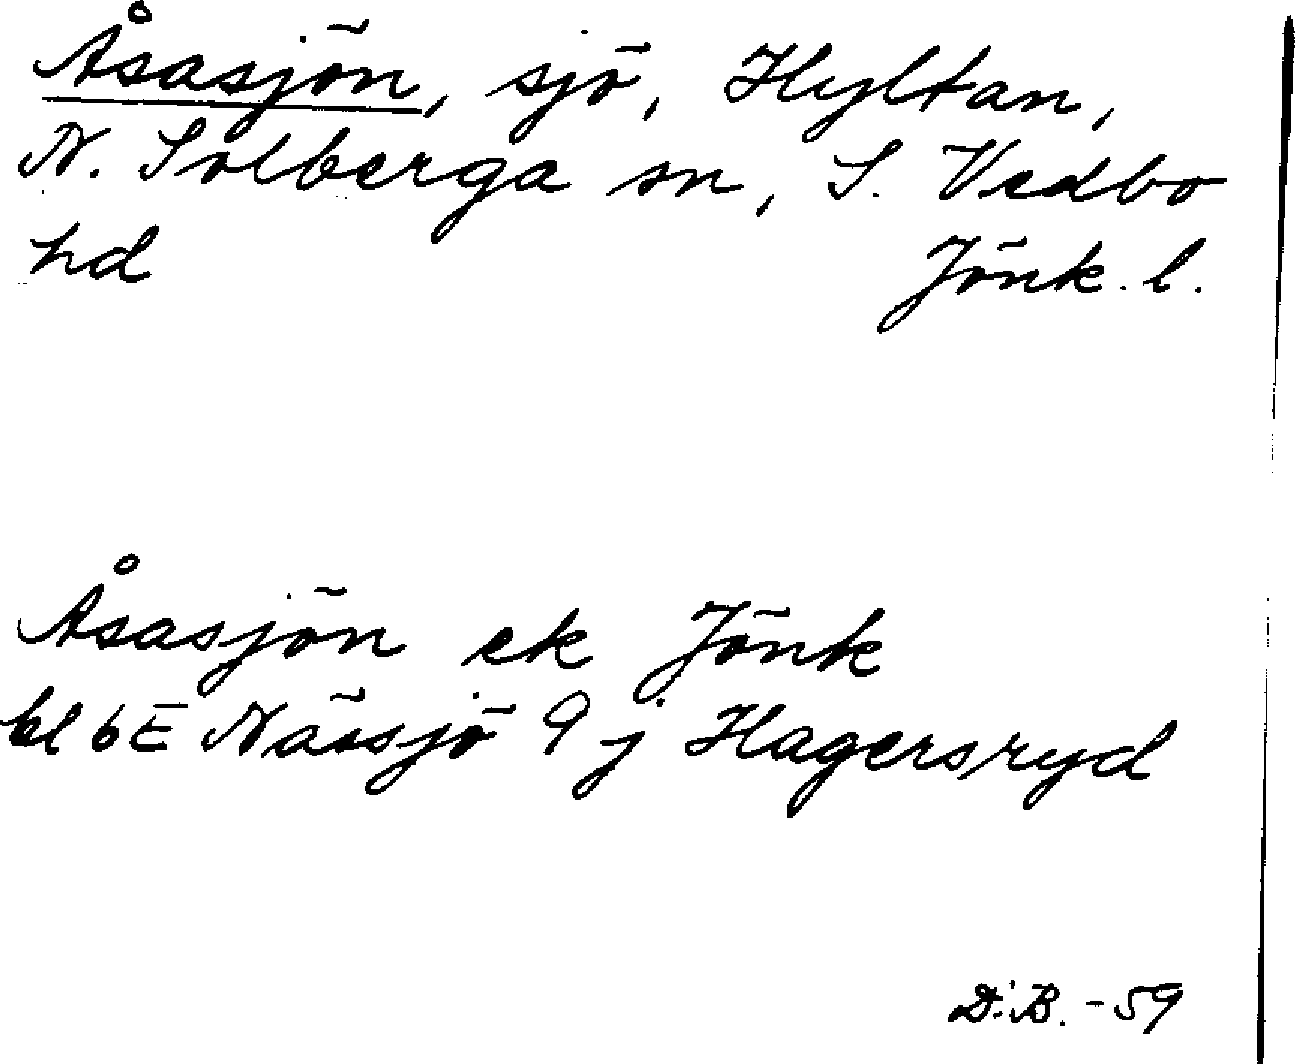 Åsasjön, sjö, Hyltan,
N. Solberga sn, S. Vedbo
hd Jönk. l.
Åsasjön ek Jönk
bl 6E Nässjö 9 j Hagersryd
D.B. -59